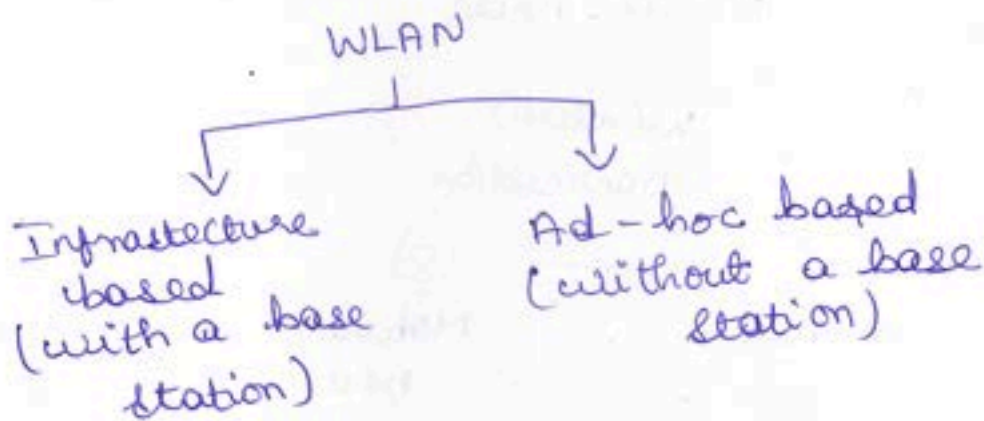 WLAN
Infrastecture
based
(with a base
station)
Ad-hoc based
(without a base
station)